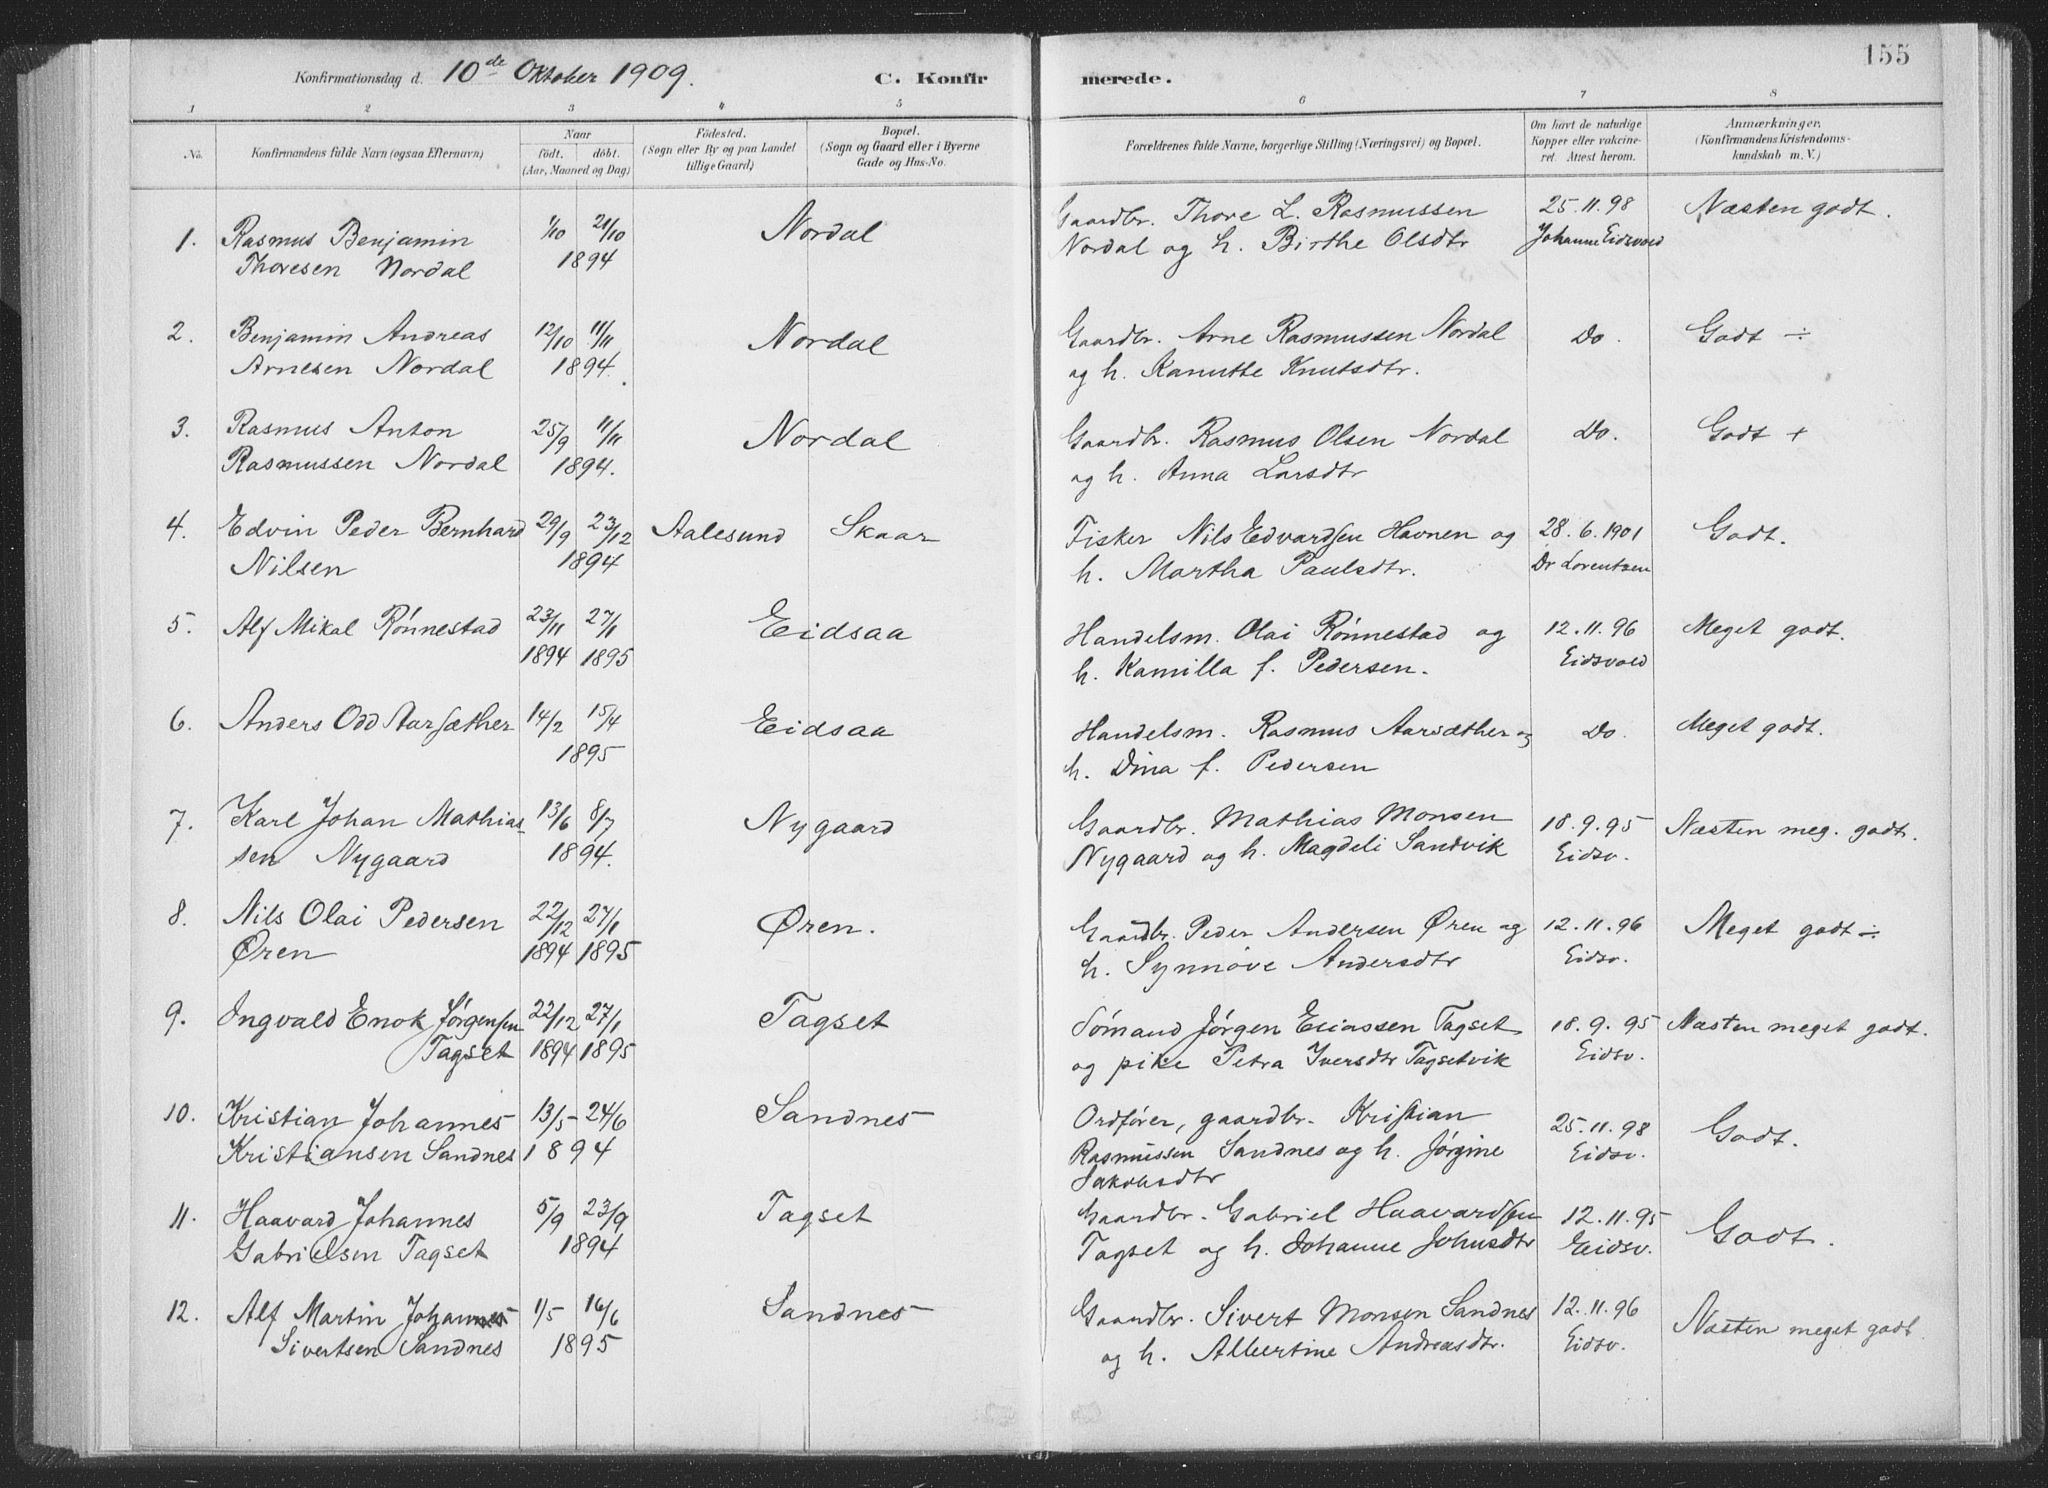 155
Konfirmationsdag d. 10de Oktober 1909.
C. Konfirmerede.
1 2 3 4 5 6 7 8
No.
Konfirmandens fulde Navn (ogsaa Efternavn)
Naar
födt. döbt.
(Aar, Maaned og Dag)
Födested.
(Sogn eller By og paa Landet
tillige Gaard)
Bopæl.
(Sogn og Gaard eller i Byerne
Gade og Hus-No.
Forældrenes fulde Navne, borgerlige Stilling (Næringsvei) og Bopæl.
Om havt de naturlige
Kopper eller vakcine-
ret. Attest herom.
Anmærkninger.
(Konfirmandens Kristendoms-
kundskab m. V.)
1. Rasmus Benjamin 1/10 21/10 Nordal Gaardbr. Thore L. Rasmussen 25.11.98 Næsten godt.
Thoresen Nordal 1894 Nordal og h. Birthe Olsdtr Johanne Eidsvold
2. Benjamin Andreas 12/10 11/11 Nordal Gaardbr. Arne Rasmussen Nordal Do. Godt ÷
Arnesen Nordal 1894. og h. Kanutte Knutsdtr.
3. Rasmus Anton 25/9 11/11 Nordal Gaardbr. Rasmus Olsen Nordal Do. Godt +
Rasmussen Nordal 1894. og h. Anna Larsdtr
4. Edvin Peder Bernhard 29/9 23/12 Aalesund Skaar Fisker Nils Edvardsen Havnen og 28.6.1901 Godt.
Nilsen 1894 h. Martha Paulsdtr. Dr Lorentzen
5. Alf Mikal Rønnestad 23/11 27/1 Eidsaa Handelsm. Olai Rønnestad og 12.11.96 Meget godt.
1894 1895 h. Kamilla f. Pedersen. Eidsvold
6. Anders Odd Aarsæther 14/2 15/4 Eidsaa Handelsm. Rasmus Aarsæther og Do. Meget godt.
1895 h. Dina f. Pedersen
7. Karl Johan Mathias- 13/6 8/7 Nygaard Gaardbr. Mathias Monsen 18.9.95 Næsten meg. godt.
sen Nygaard 1894. Nygaard og h. Magdeli Sandvik Eidsv.
8. Nils Olai Pedersen 22/12 27/1 Øren. Gaardbr. Peder Andersen Øren og 12.11.96 Meget godt ÷
Øren 1894 1895 h. Synnøve Andersdtr Eidsv.
9. Ingvald Enok Jørgensen 22/12 27/1 Tagset Sømand Jørgen Eliassen Tagset 18.9.95 Næsten meget godt.
Tagset 1894 1895 og pike Petra Iversdtr Tagsetvik Eidsv.
10. Kristian Johannes 13/5 24/6 Sandnes Ordfører, gaardbr. Kristian 25.11.98 Godt.
Kristiansen Sandnes 1894 Rasmussen Sandnes og h. Jørgine Eidsv.
Jakobsdtr
11. Haavard Johannes 5/9 23/9 Tagset Gaardbr. Gabriel Haavardsen 12.11.95 Godt.
Gabrielsen Tagset 1894 Tagset og h. Johanne Johnsdtr Eidsv.
12. Alf Martin Johannes 1/5 16/6 Sandnes Gaardbr. Sivert Monsen Sandnes 12.11.96 Næsten meget godt
Sivertsen Sandnes 1895 og h. Albertine Andreasdtr. Eidsv.